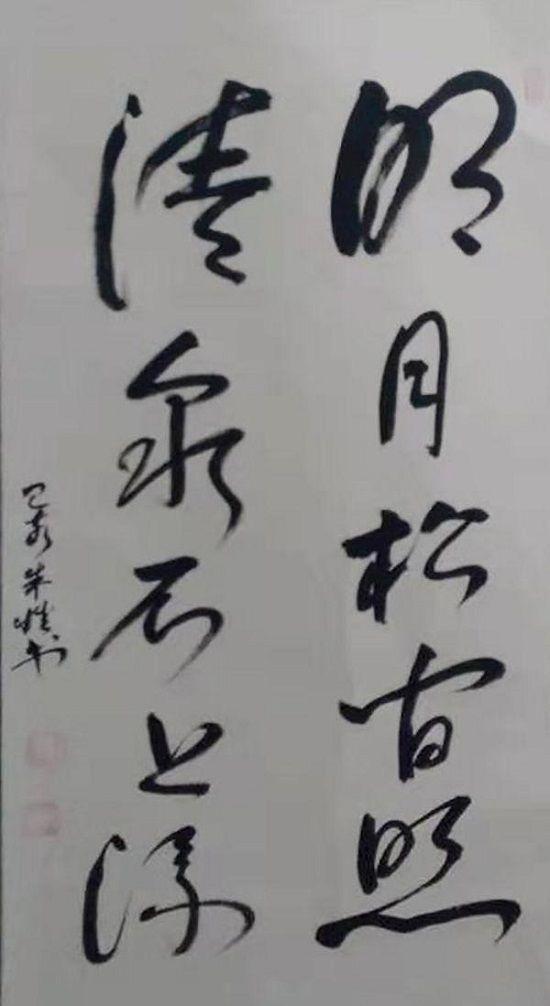 明月松间照
清泉石上流
己亥朱惟书